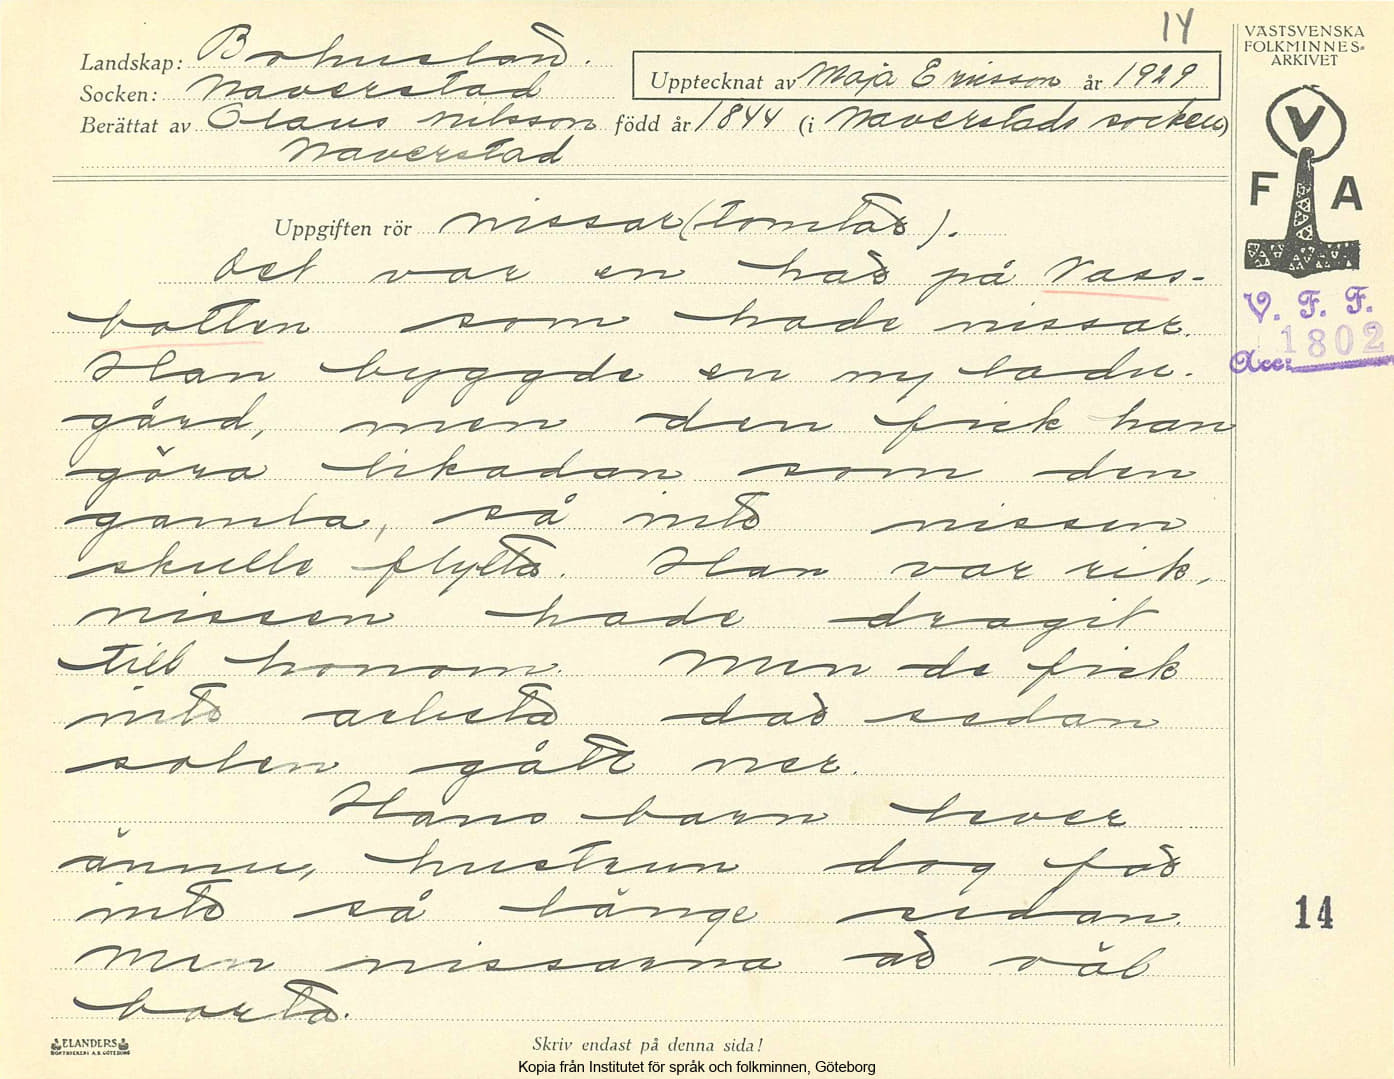 14
VÄSTSVENSKA
FOLKMINNES-
ARKIVET
Landskap: Bohuslän.
Socken: Naverstad
Upptecknat av Maja Ericsson år 1929
Berättat av Olaus Nilsson född år 1844 (i Naverstads socken)
Naverstad
V
F A
Uppgiften rör nissar (tomtar).
Det var en har på Vass-
botten som hade nissar.
Han byggde en ny ladu-
gård, men den fick han
göra likadan som den
gamla, så inte nissen
skulle flytta. Han var rik,
nissen hade dragit
till honom. Men de fick
inte arbeta där sedan
solen gått ner.
Hans barn lever
ännu, hustrun dog för
inte så länge sedan.
Men nissarna är väl
borta.
V. F. F.
1802
Acc:
14
ELANDERS
BOKTRYCKERI A.B. GÖTEBORG
Skriv endast på denna sida!
Kopia från Institutet för språk och folkminnen, Göteborg